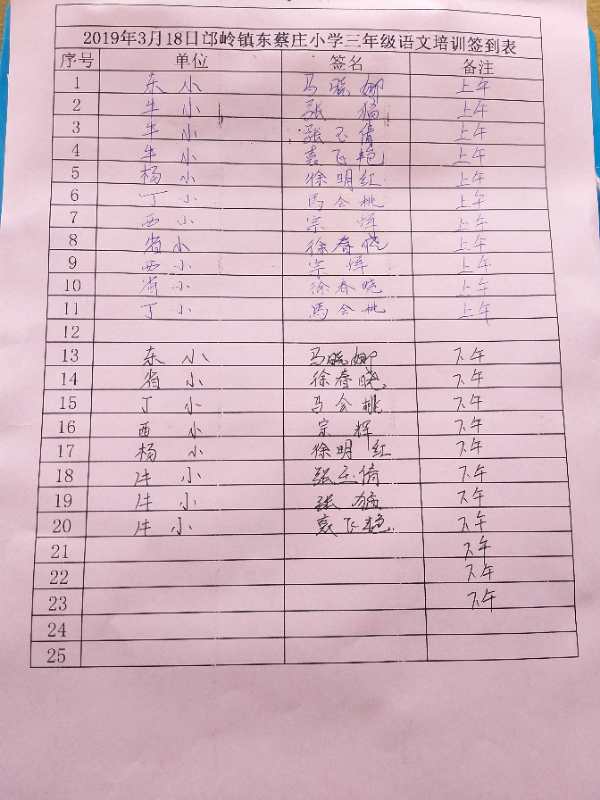 2019年3月18日邙岭镇东蔡庄小学三年级语文培训签到表
序号 单位 签名 备注
1 东小 马晓娜 上午
2 牛小 张 上午
3 牛小 张玉倩 上午
4 牛小 袁飞艳 上午
5 杨小 徐明红 上午
6 丁小 马会桃 上午
7 西小 宗辉 上午
8 省小 徐春晓 上午
9 西小 宗辉 上午
10 省小 徐春晓 上午
11 丁小 马会桃 上午
12
13 东小 马晓娜 下午
14 省小 徐春晓 下午
15 丁小 马会桃 下午
16 西小 宗辉 下午
17 杨小 徐明红 下午
18 牛小 张玉倩 下午
19 牛小 张 下午
20 牛小 袁飞艳 下午
21 下午
22 下午
23 下午
24
25